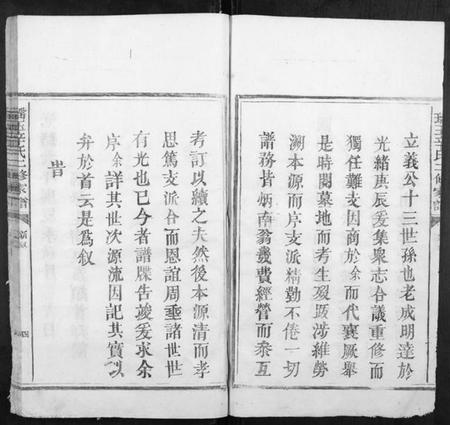 立義公十三世孫也老成明達於
光緒庚辰爰集衆志合議重修而
獨任難支因商於余而代襄厥舉
是時閱墓地而考生殁跋涉維勞
溯本源而序支派精勤不倦一切
譜務皆炳南翁幾費經營而叅互
考訂以續之夫然後本源清而孝
思篤支派合而恩誼周垂諸世世
有光也已今者譜牒告竣爰求余
序余詳其世次源流因記其實以
弁於首云是爲叙
旹
氏二修家譜